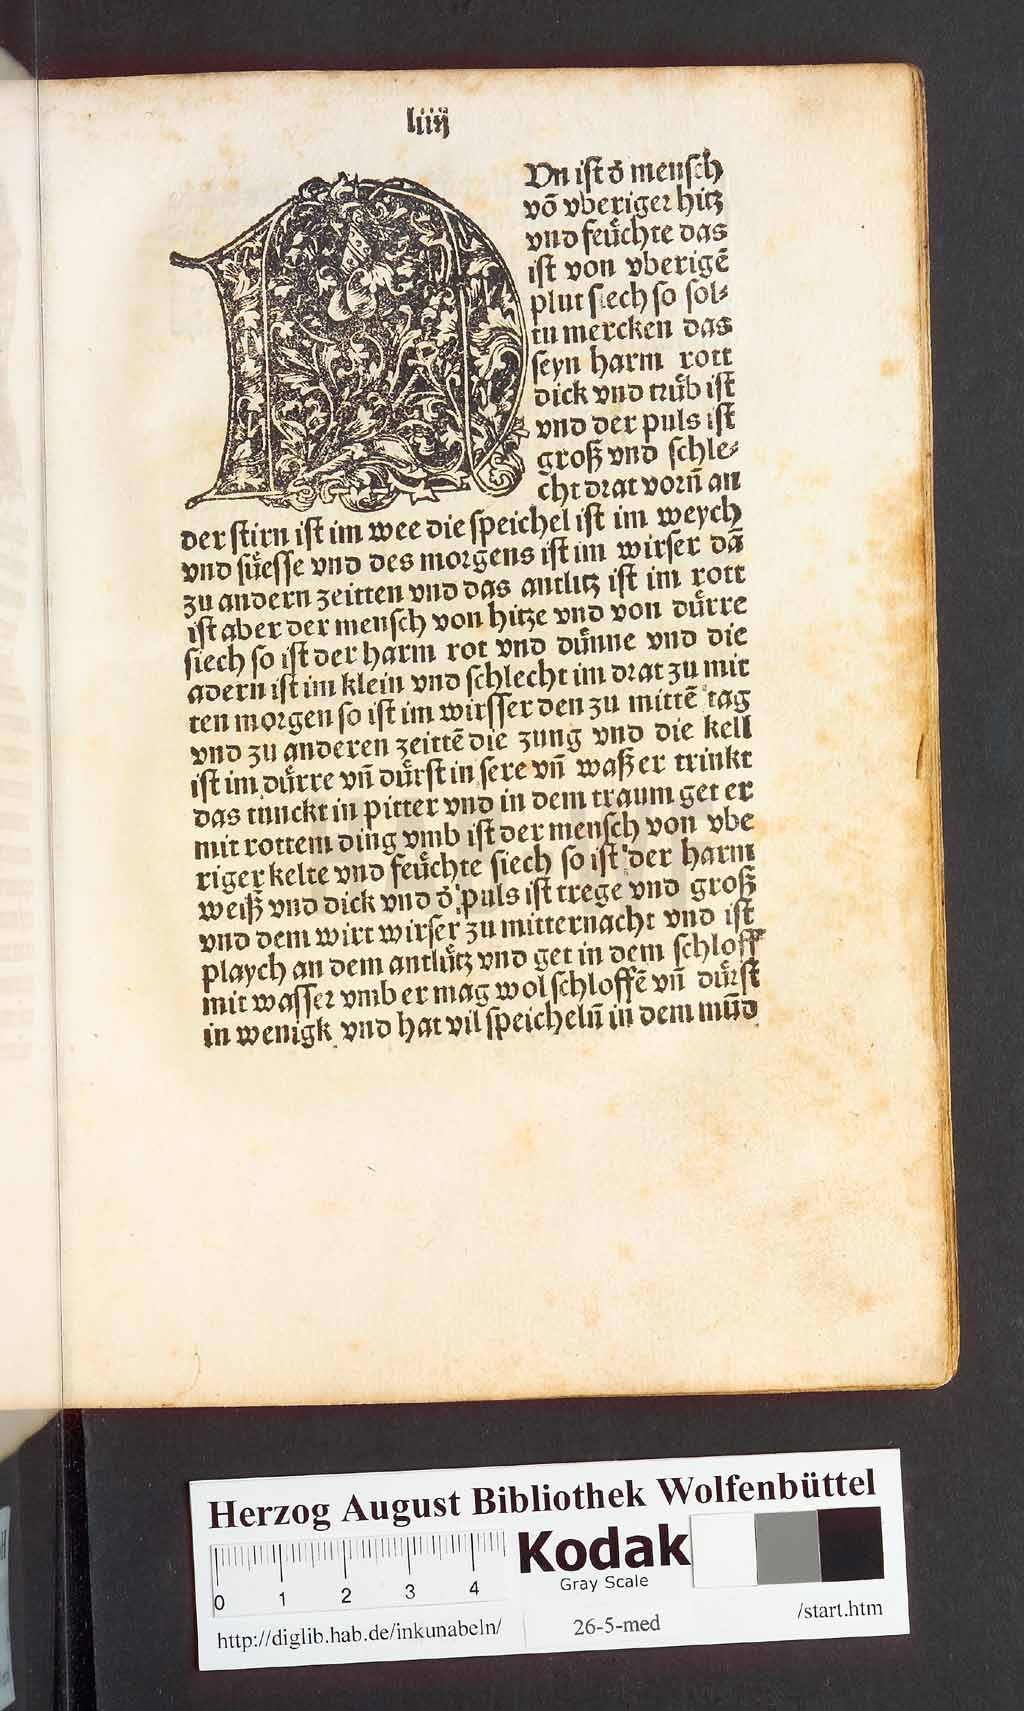 liiij
NVn ist d�mensch
võ vberiger hitz
vnd feuͤchte das
ist von vberigẽ
plut siech so sol⸗
tu mercken das
seyn harm rott
dick vnd truͤb ist
vnd der puls ist
groß vnd schle⸗
cht drat vorn̄ an
der stirn ist im wee die speichel ist im weych
vnd suͤesse vnd des morgens ist im wirser dã
zu andern zeitten vnd das antlitz ist im rott
ist aber der mensch von hitze vnd von duͤrre
siech so ist der harm rot vnd duͤnne vnd die
adern ist im klein vnd schlecht im drat zu mit
ten morgen so ist im wirsser den zu mittẽ tag
vnd zu anderen zeittẽ die zung vnd die kell
ist im duͤrre vn̄ duͤrst in sere vn̄ waß er trinkt
das tunckt in pitter vnd in dem traum get er
mit rottem ding vmb ist der mensch von vbe
riger kelte vnd feuͤchte siech so ist der harm
weiß vnd dick vnd d᷑ puls ist trege vnd groß
vnd dem wirt wirser zu mitternacht vnd ist
playch an dem antluͤtz vnd get in dem schloff
mit wasser vmb er mag wol schloffẽ vn̄ duͤrst
in wenigk vnd hat vil speicheln̄ in dem mūd
Herzog August Bibliothek Wolfenbüttel
Kodak
Gray Scale
0 1 2 3 4
http://diglib.hab.de/inkunabeln/ 26-5-med /start.htm